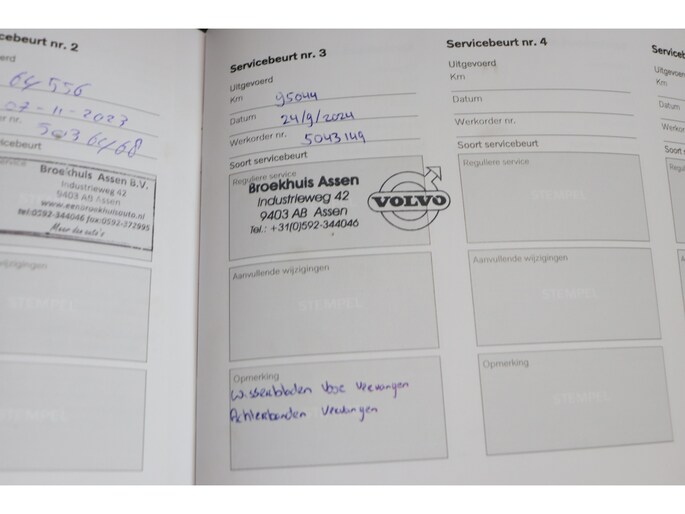 cebeurt nr. 2
64 556
07-11-2023
order nr. 50136468
servicebeurt
Broekhuis Assen B.V.
Industrieweg 42
9403 AB Assen
www.eenbroekhuisauto.nl
tel:0592-344046 fax:0592-372995
Meer dan auto's
STEMPEL
Servicebeurt nr. 3
Uitgevoerd
Km 95044
Datum 24/9/2024
Werkorder nr. 5043149
Soort servicebeurt
Reguliere service
Broekhuis Assen
Industrieweg 42
9403 AB Assen
Tel.: +31(0)592-344046
VOLVO
Aanvullende wijzigingen
STEMPEL
Opmerking
Wisserbladen Voor Vervangen
Achterbanden Vervangen
Servicebeurt nr. 4
Uitgevoerd
Km
Datum
Werkorder nr.
Soort servicebeurt
Reguliere service
Aanvullende wijzigingen
STEMPEL
Opmerking
Servicebe
Uitgevoerd
Km
Datum
Werkorder
Soort servi
Reguliere
Aanvull
Opme